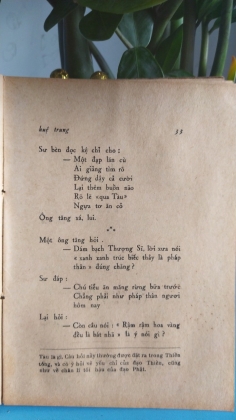 huệ trung 33
Sư bèn đọc kệ chỉ cho :
— Một đạp lăn cù
Ai giãng tìm rõ
Đứng dây cả cười
Lại thêm buồn nào
Rõ lẽ «qua Tàu»
Ngựa tơ ăn cỏ
Ông tăng xá, lui.
***
Một ông tăng hỏi .
— Dám bạch Thượng Sĩ, lời xưa nói
« xanh xanh trúc biếc thảy là pháp
thân » đúng chăng ?
Sư đáp :
— Chú tiểu ăn măng rừng bữa trước
Chẳng phải như pháp thân ngươi
hôm nay
Lại hỏi :
— Còn câu nói : « Rậm rậm hoa vàng
đều là bát nhã » là ý nói gì ?
Tàu là gì. Câu hỏi nầy thường được đặt ra trong Thiền
tông, và có ý hỏi về yếu chỉ của đạo Thiền, cũng
như về chân lí tối hậu của đạo Phật.